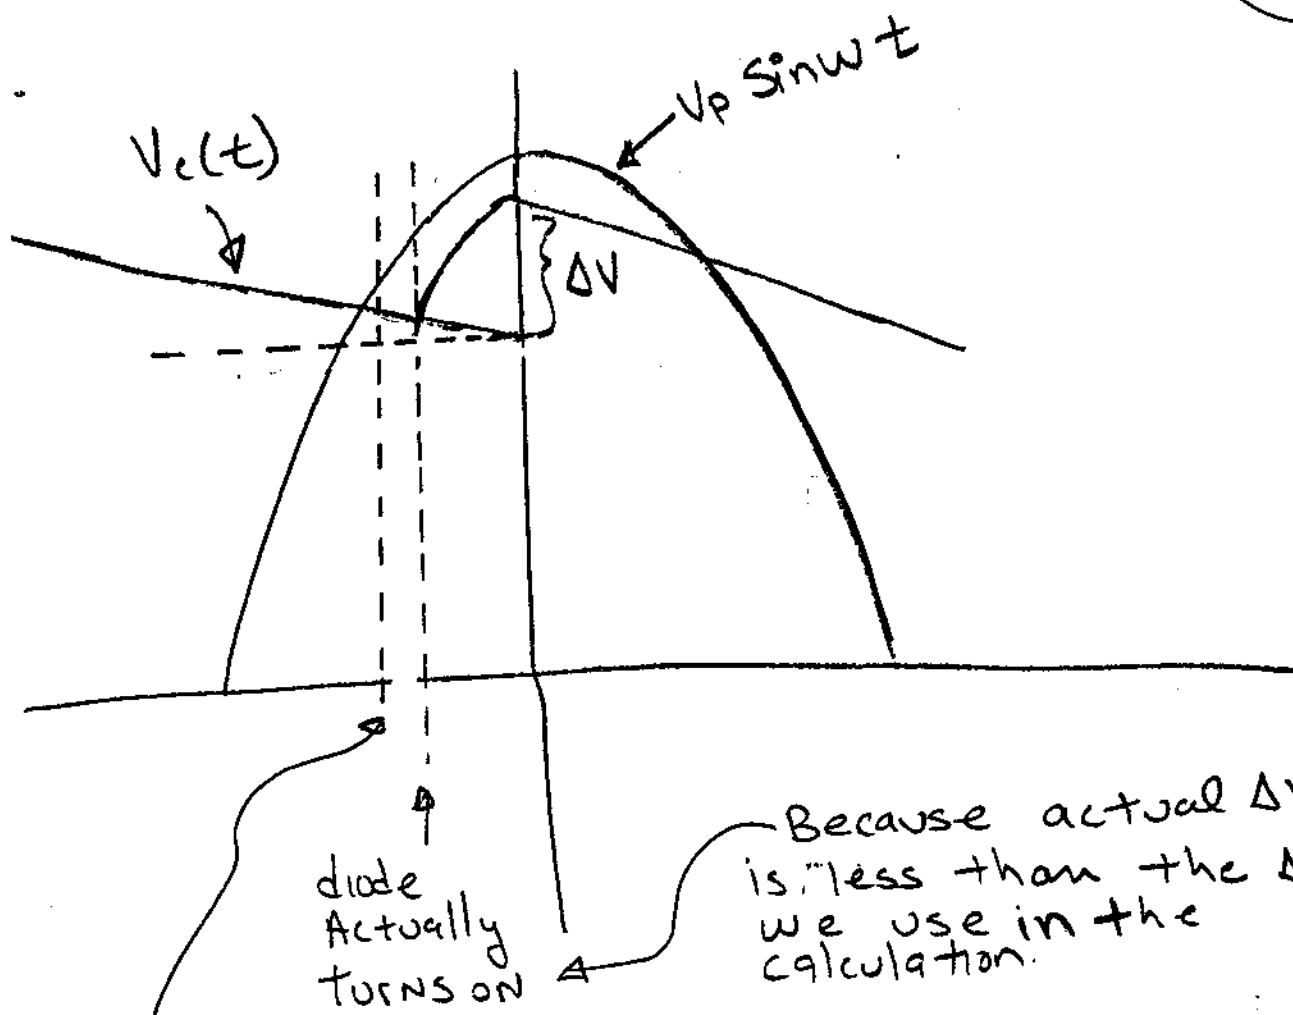 Vp Sinwt
Vc(t)
ΔV
diode
Actually
turns on
Because actual ΔV
is less than the Δ
we use in the
calculation.